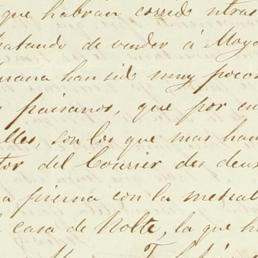 que habran corrido otras
tratando de vender á Mayo
mana han sido muy pocos
paisanos, que por en
lles, son los que mas han
tor del Courrier des deux
a pierna con la metral
casa de Nolte, la que h